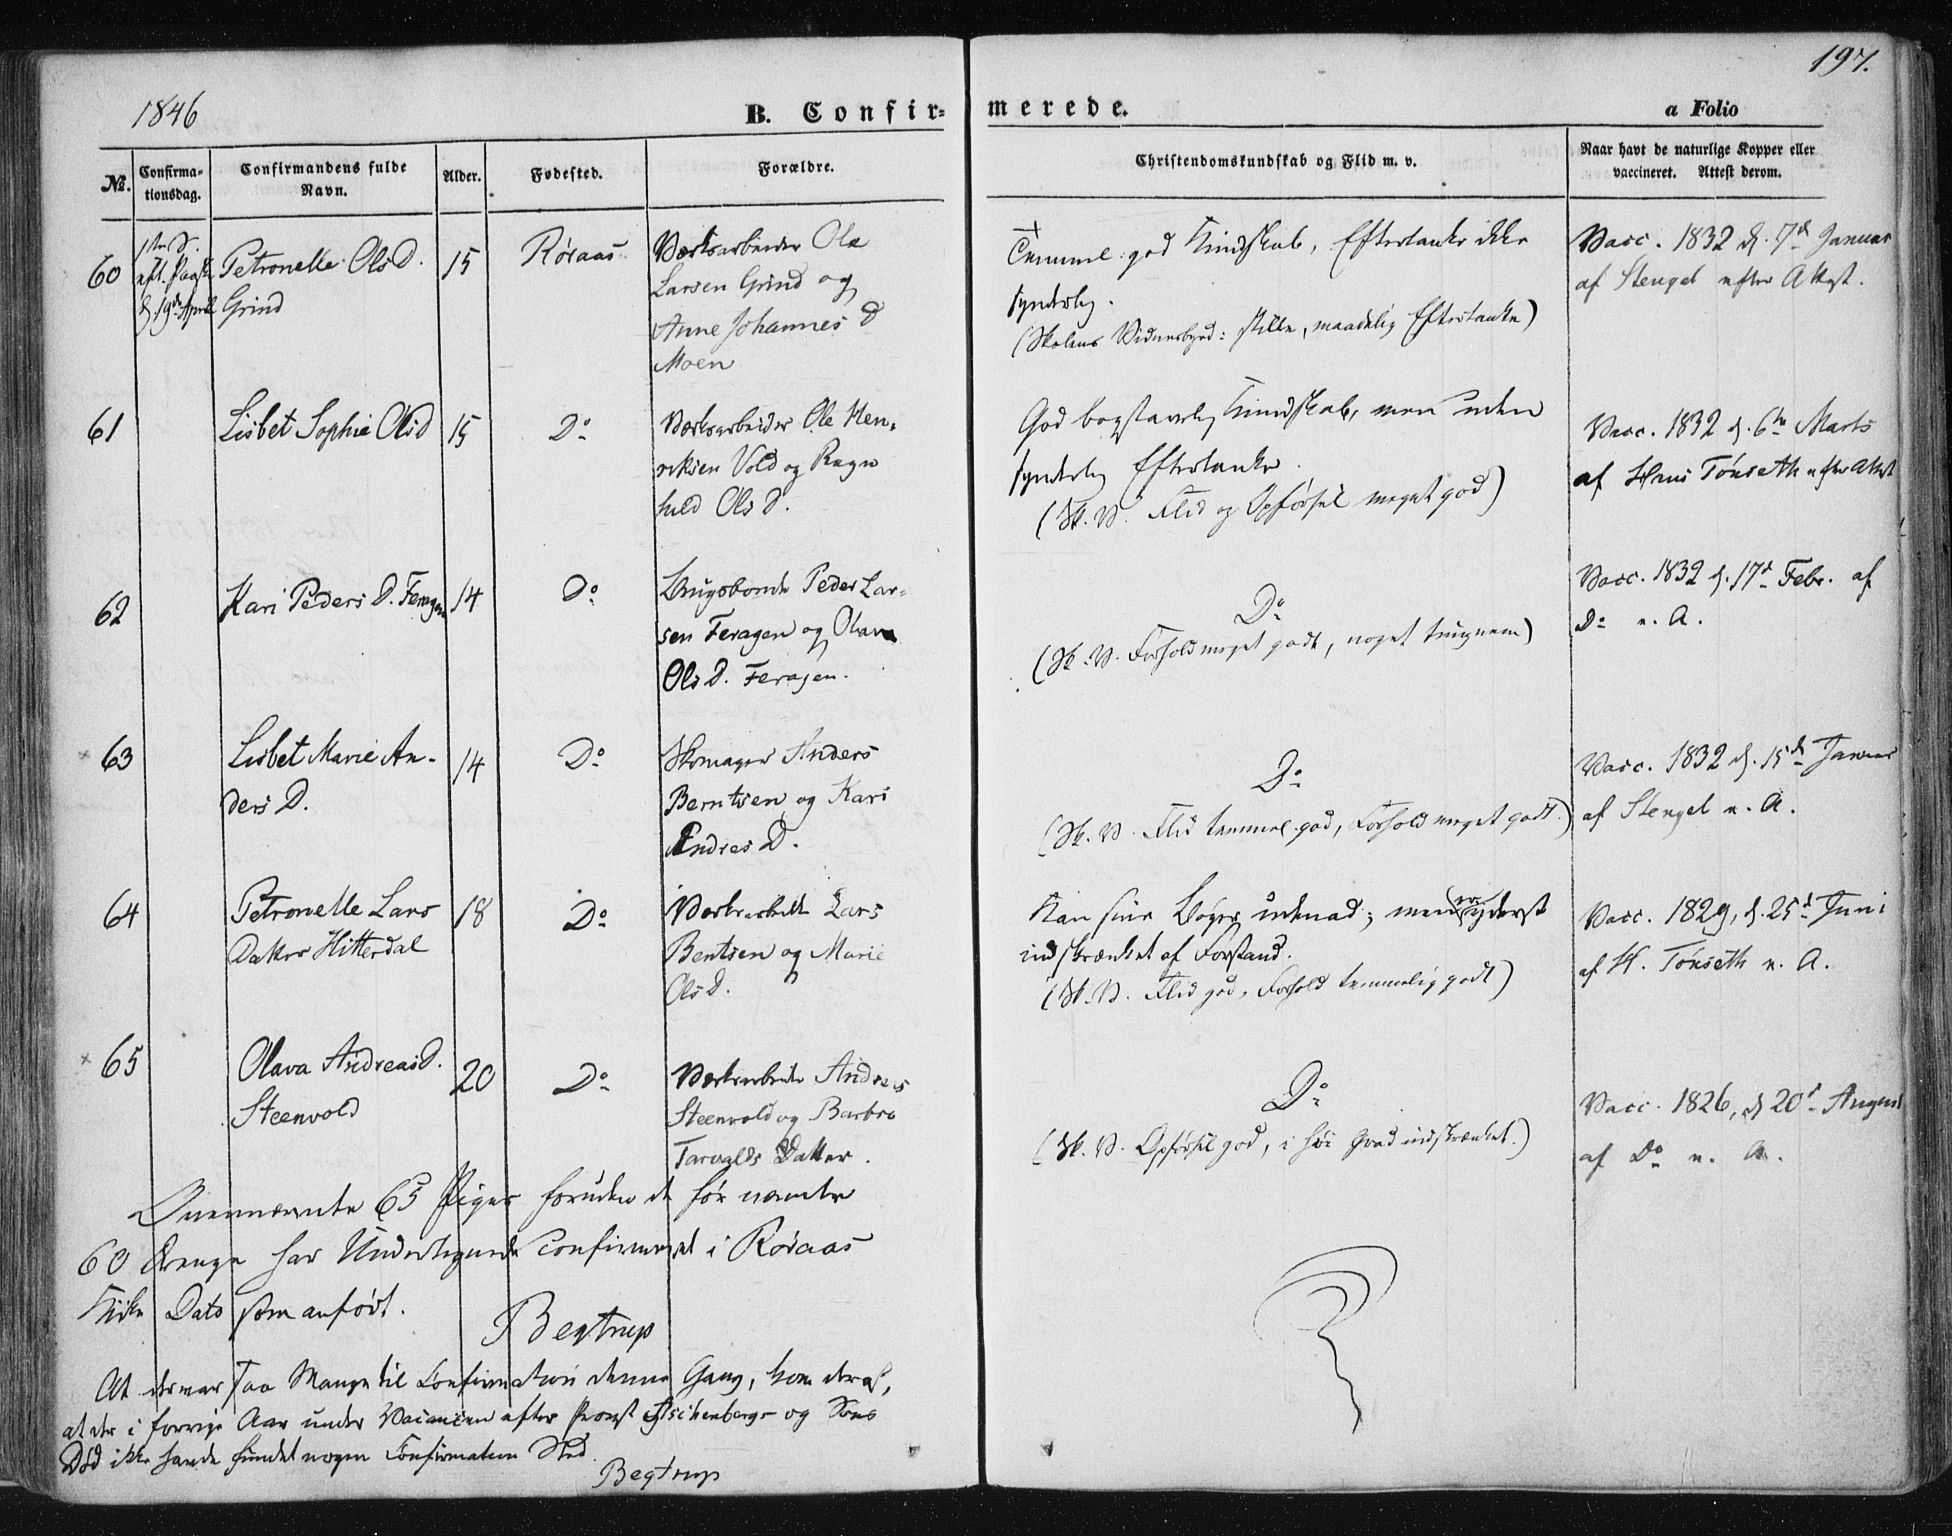 197.
1846
B. Confir-
merede.
a Folio
No.
Confirma-
tionsdag.
Confirmandens fulde
Navn.
Alder.
Fødested.
Forældre.
Christendomskundskab og Flid m. v.
Naar havt de naturlige Kopper eller
vaccineret. Attest derom.
60
1ste S.
eft. Paaske
d. 19de April
Petronelle Ols D.
Grind
15
Røraas
Værksarbeider Ole
Larsen Grind og
Anne Johannes D
Moen
Temmel. god Kundskab, Eftertanke ikke
synderlig.
(Skolens Vidnesbyrd: stille, maadelig Eftertanke)
Vacc. 1832 d. 7d Januar
af Stengel efter Attest.
61
Lisbet Sophie Ols D
15
Do
Værksarbeider Ole Hen-
riksen Vold og Ragn
hild Ols D.
God bogstavelig Kundskab, men uden
synderlig Eftertanke.
(Sk. V. Flid og Opførsel meget god)
Vacc. 1832 d. 6te Marts
af Hans Tønseth efter Attest
62
Kari Peders D. Feragen
14
Do
Brugsbonde Peder Lar-
sen Feragen og Olava
Ols D. Feragen.
Do
(Sk. V. Forhold meget godt, noget tungnem)
Vacc. 1832 d. 17d Febr. af
Do e. A.
63
Lisbet Marie An-
ders D.
14
Do
Skomager Anders
Berntsen og Kari
Andres D.
Do
(Sk. V. Flid temmel. god, Forhold meget godt.)
Vacc. 1832 d. 15d Januar
af Stengel e. A.
64
Petronelle Lars
Datter Hitterdal
18
Do
Værksarbeide Lars
Bentsen og Marie
Ols D.
Kan sine Bøger udenad; men er yderst
indskrænket af Forstand.
(Sk. V. Flid god, Forhold temmelig godt)
Vacc. 1829, d. 25d Juni
af H. Tønseth e. A.
65
Olava Andreas D.
Steenvold
20
Do
Værksarbeide Andreas
Steenvold og Barbro
Tarvalds Datter.
Do
(Sk. V. Opførsel god, i høi Grad indskrænket.)
Vacc. 1826, d 20d August
af Do e. A.
Ovennævnte 65 Piger foruden de før nævnte
60 Drenge har Undertegnede confirmeret i Røraas
Kirke Dato som anført.
Begtrup
At der var saa Mange til Confirmation denne Gang, kom deraf,
at der i forrige Aar under Vacancen efter Provst Aschenbergs og Søns
Død ikke havde fundet nogen Confirmation Sted.
Begtrup